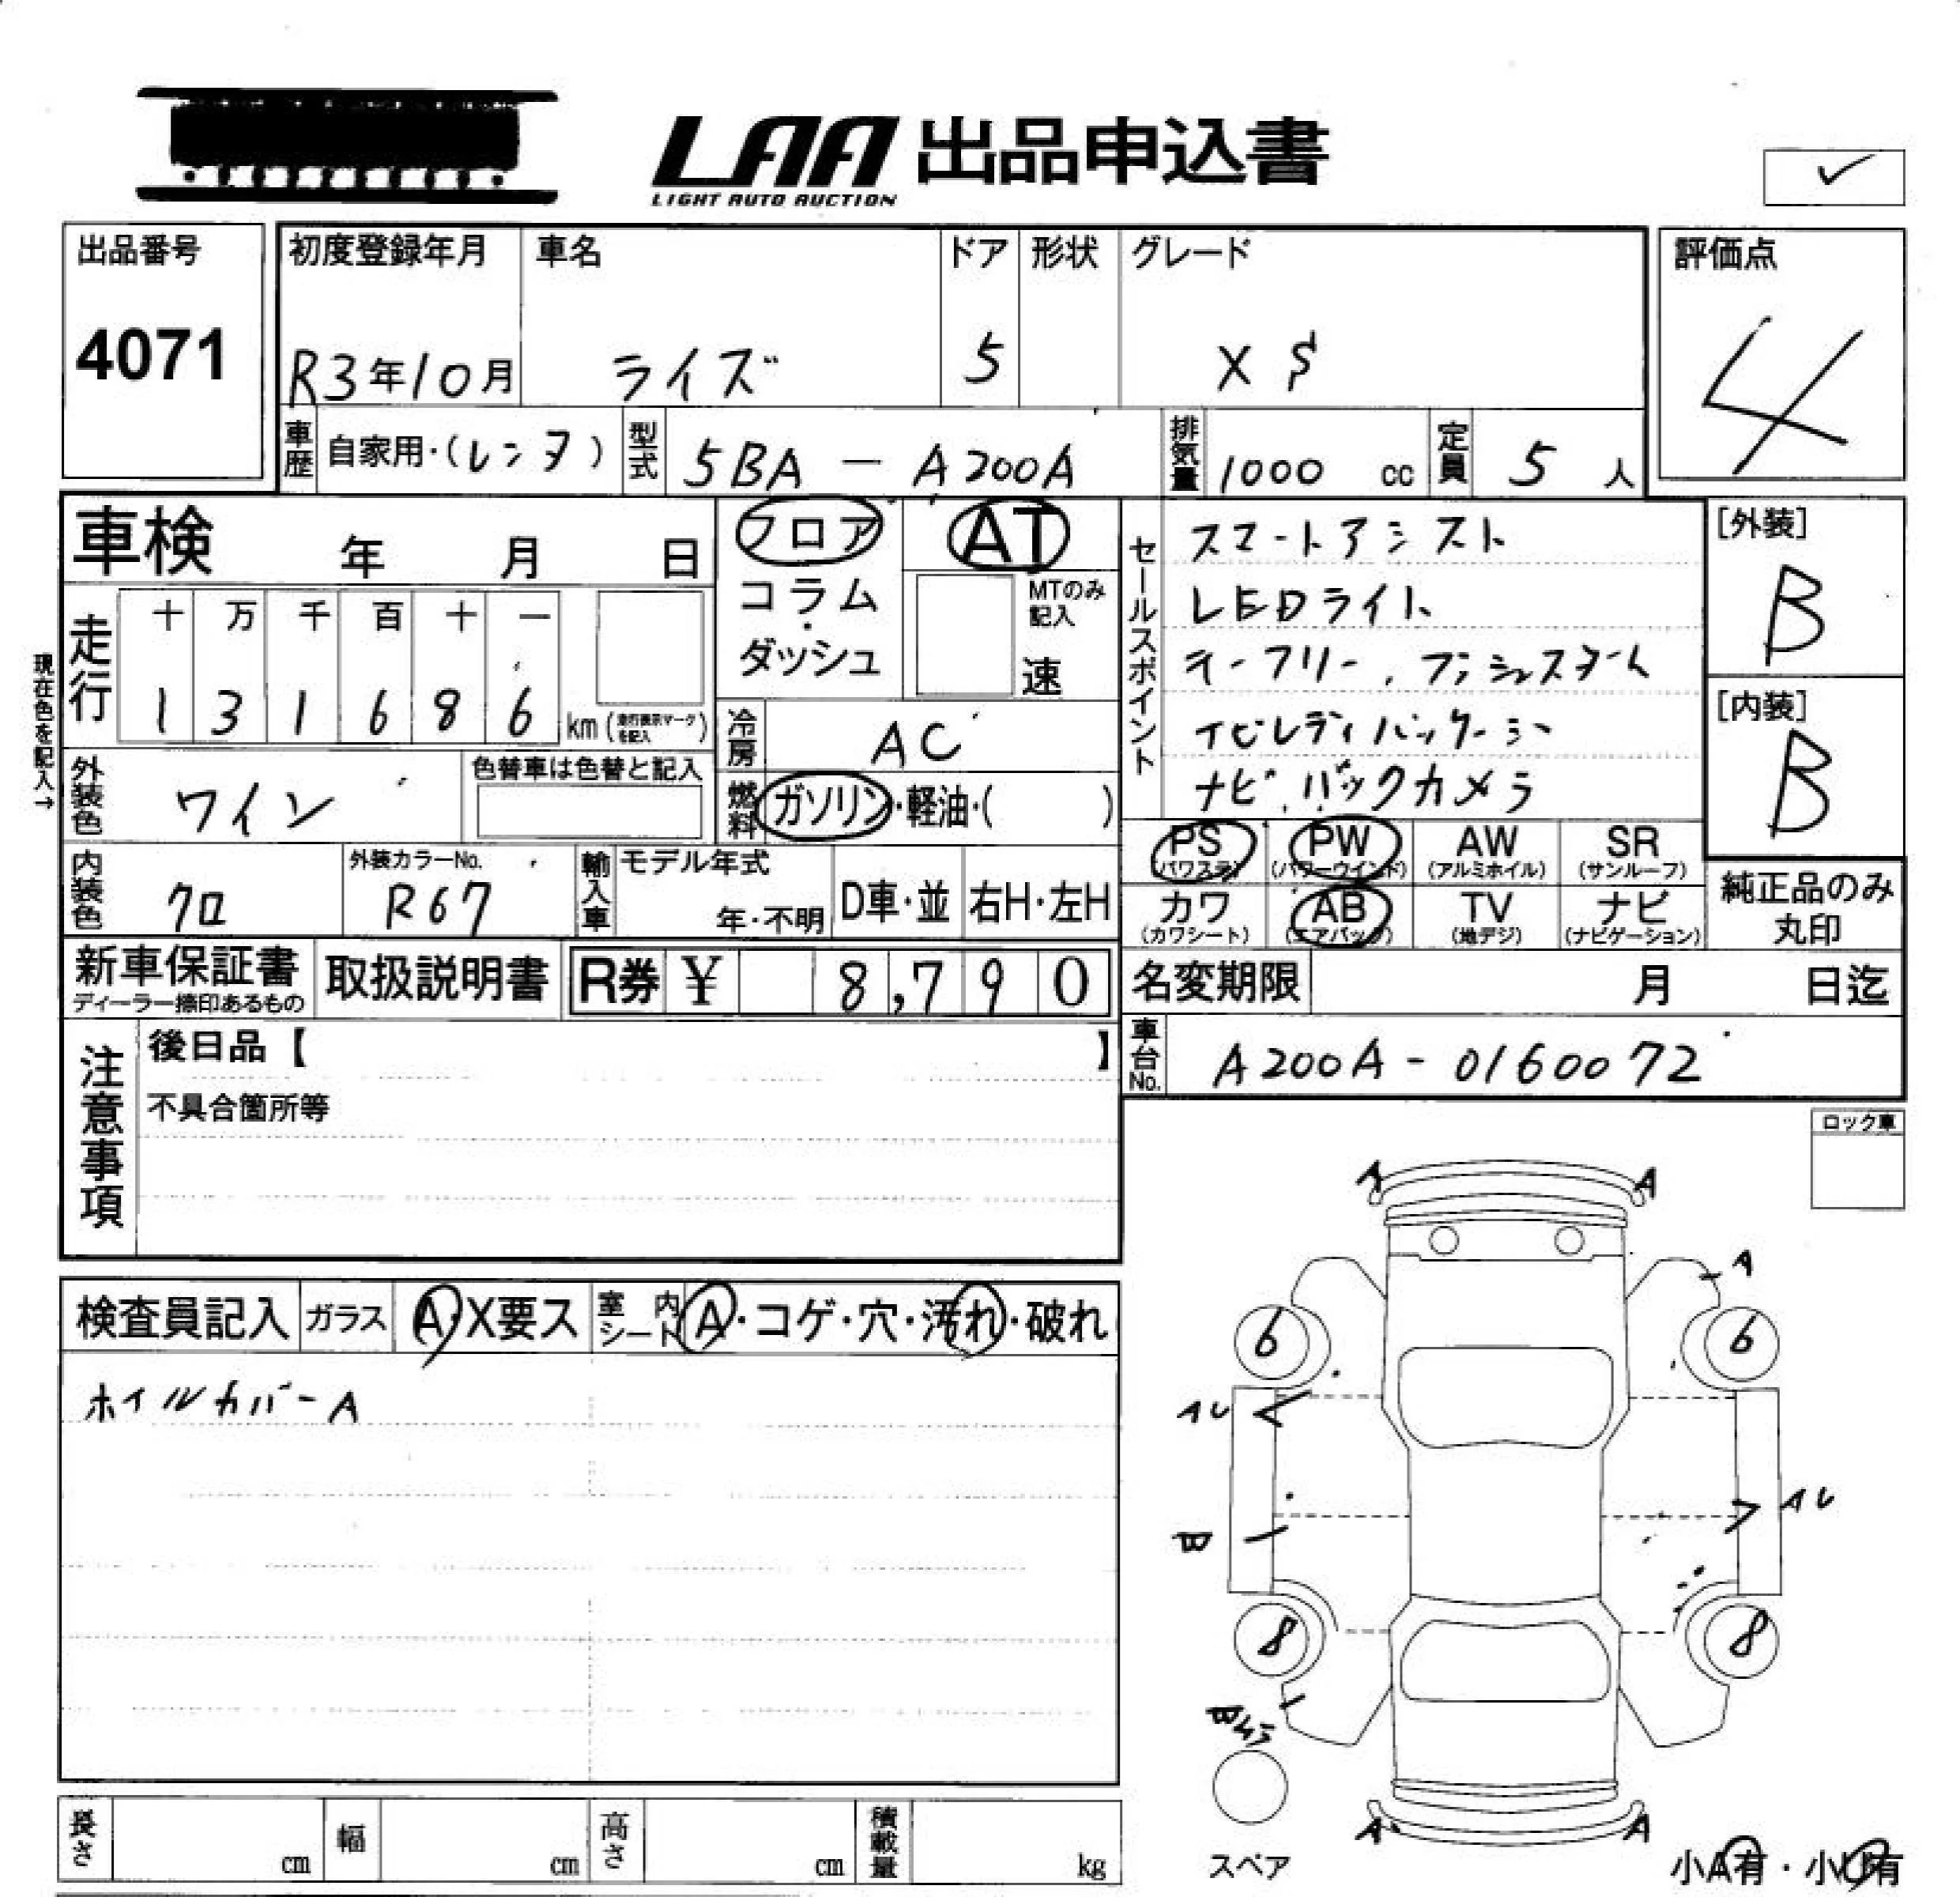 LAA 出品申込書
LIGHT AUTO AUCTION
出品番号
4071
初度登録年月
R3年10月
車名
ライズ
ドア
5
形状
グレード
X S
評価点
4
車歴
自家用・(レンタ)
型式
5BA - A200A
排気量
1000 cc
定員
5 人
車検 年 月 日
フロア
コラム
・
ダッシュ
AT
MTのみ
記入
速
セールスポイント
スマートアシスト
LEDライト
キーフリー、プッシュスタート
ナビレディパッケージ
ナビ、バックカメラ
[外装]
B
[内装]
B
現在色を記入→
走行
十 万 千 百 十 一
1 3 1 6 8 6
km (走行表示マークを記入)
冷房
AC
外装色
ワイン
色替車は色替と記入
燃料
ガソリン・軽油・( )
内装色
クロ
外装カラーNo.
R67
輸入車
モデル年式
年・不明
D車・並
右H・左H
PS
(パワステ)
PW
(パワーウインド)
AW
(アルミホイル)
SR
(サンルーフ)
カワ
(カワシート)
AB
(エアバック)
TV
(地デジ)
ナビ
(ナビゲーション)
純正品のみ
丸印
新車保証書
ディーラー捺印あるもの
取扱説明書
R券 ¥ 8,790
名変期限 月 日迄
車台No.
A200A - 0160072
注意事項
後日品【 】
不具合箇所等
ロック車
検査員記入
ガラス
A・X要ス
室内
シート
A・コゲ・穴・汚れ・破れ
ホイルカバーA
A A
A
6 6
AU
AU
B
8 8
スペア
A A
小A有・小U有
長さ cm
幅 cm
高さ cm
積載量 kg